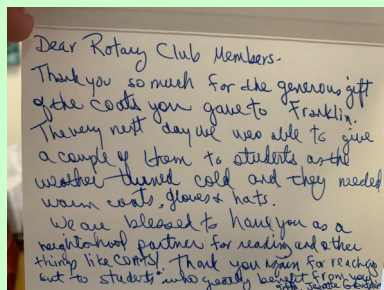 Dear Rotary Club Members-
Thank you so much for the generous gift
of the coats you gave to Franklin.
The very next day we were able to give
a couple of them to students as the
weather turned cold and they needed
warm coats, gloves & hats.
We are blessed to have you as a
neighborhood partner for reading and other
things like COATS! Thank you again for reaching
out to students who greatly benefit from you!